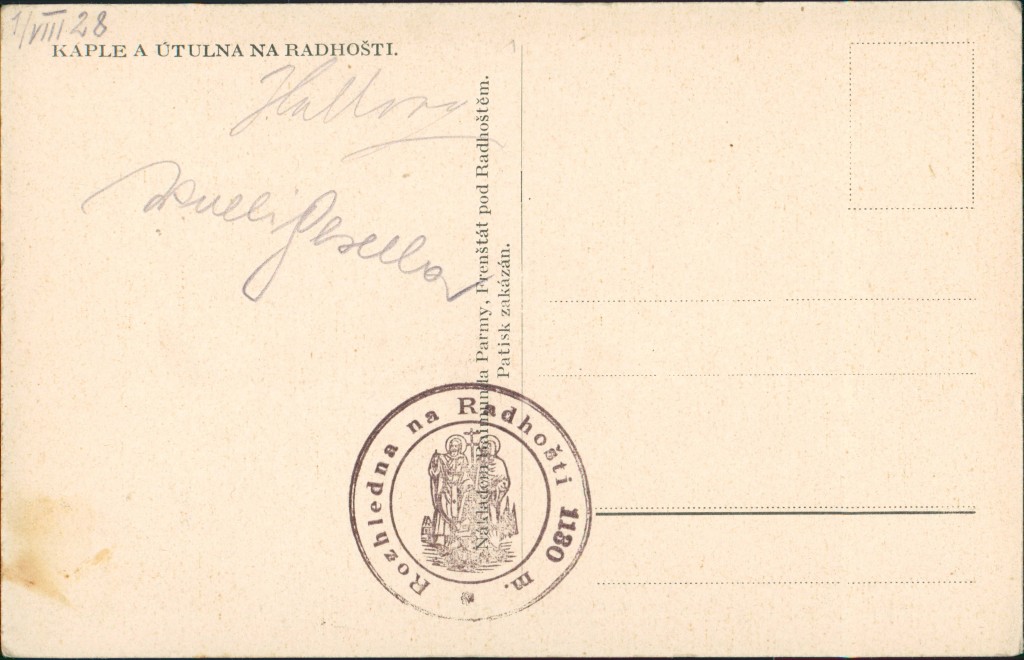 1/VIII 28
KAPLE A ÚTULNA NA RADHOŠTI.
Nákladem Raimunda Parmy, Frenštát pod Radhoštěm.
Patisk zakázán.
Rozhledna na Radhošti 1130 m.